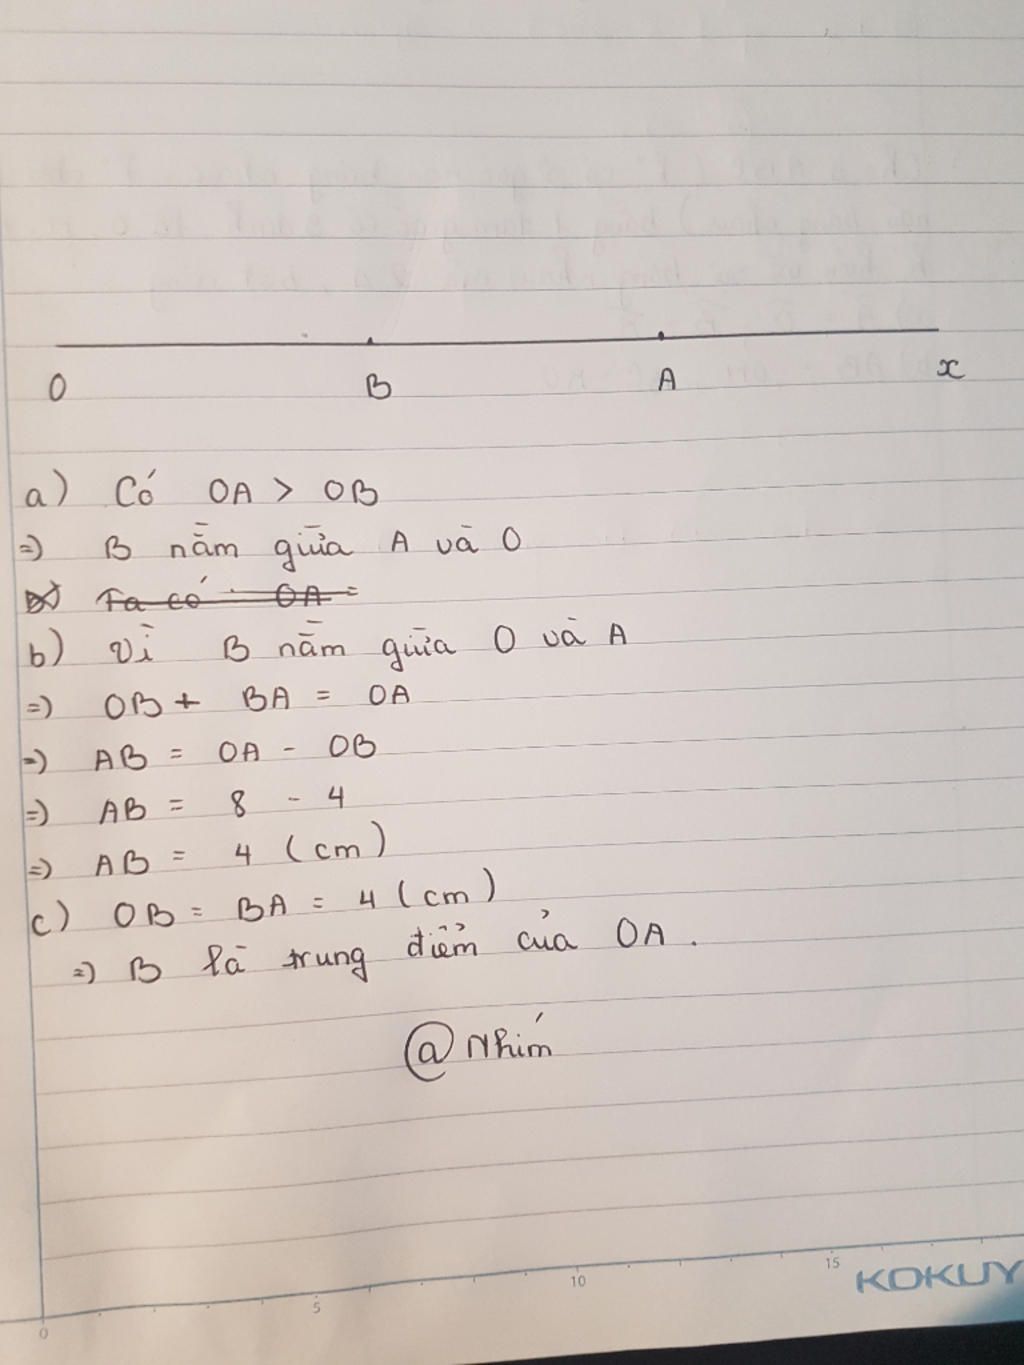 O B A x
a) Có OA > OB
=) B nằm giữa A và O
Ta có OA =
b) Vì B nằm giữa O và A
=) OB + BA = OA
=) AB = OA - OB
=) AB = 8 - 4
=) AB = 4 (cm)
c) OB = BA = 4 (cm)
=) B là trung điểm của OA.
@Nhím
0 5 10 15
KOKUY